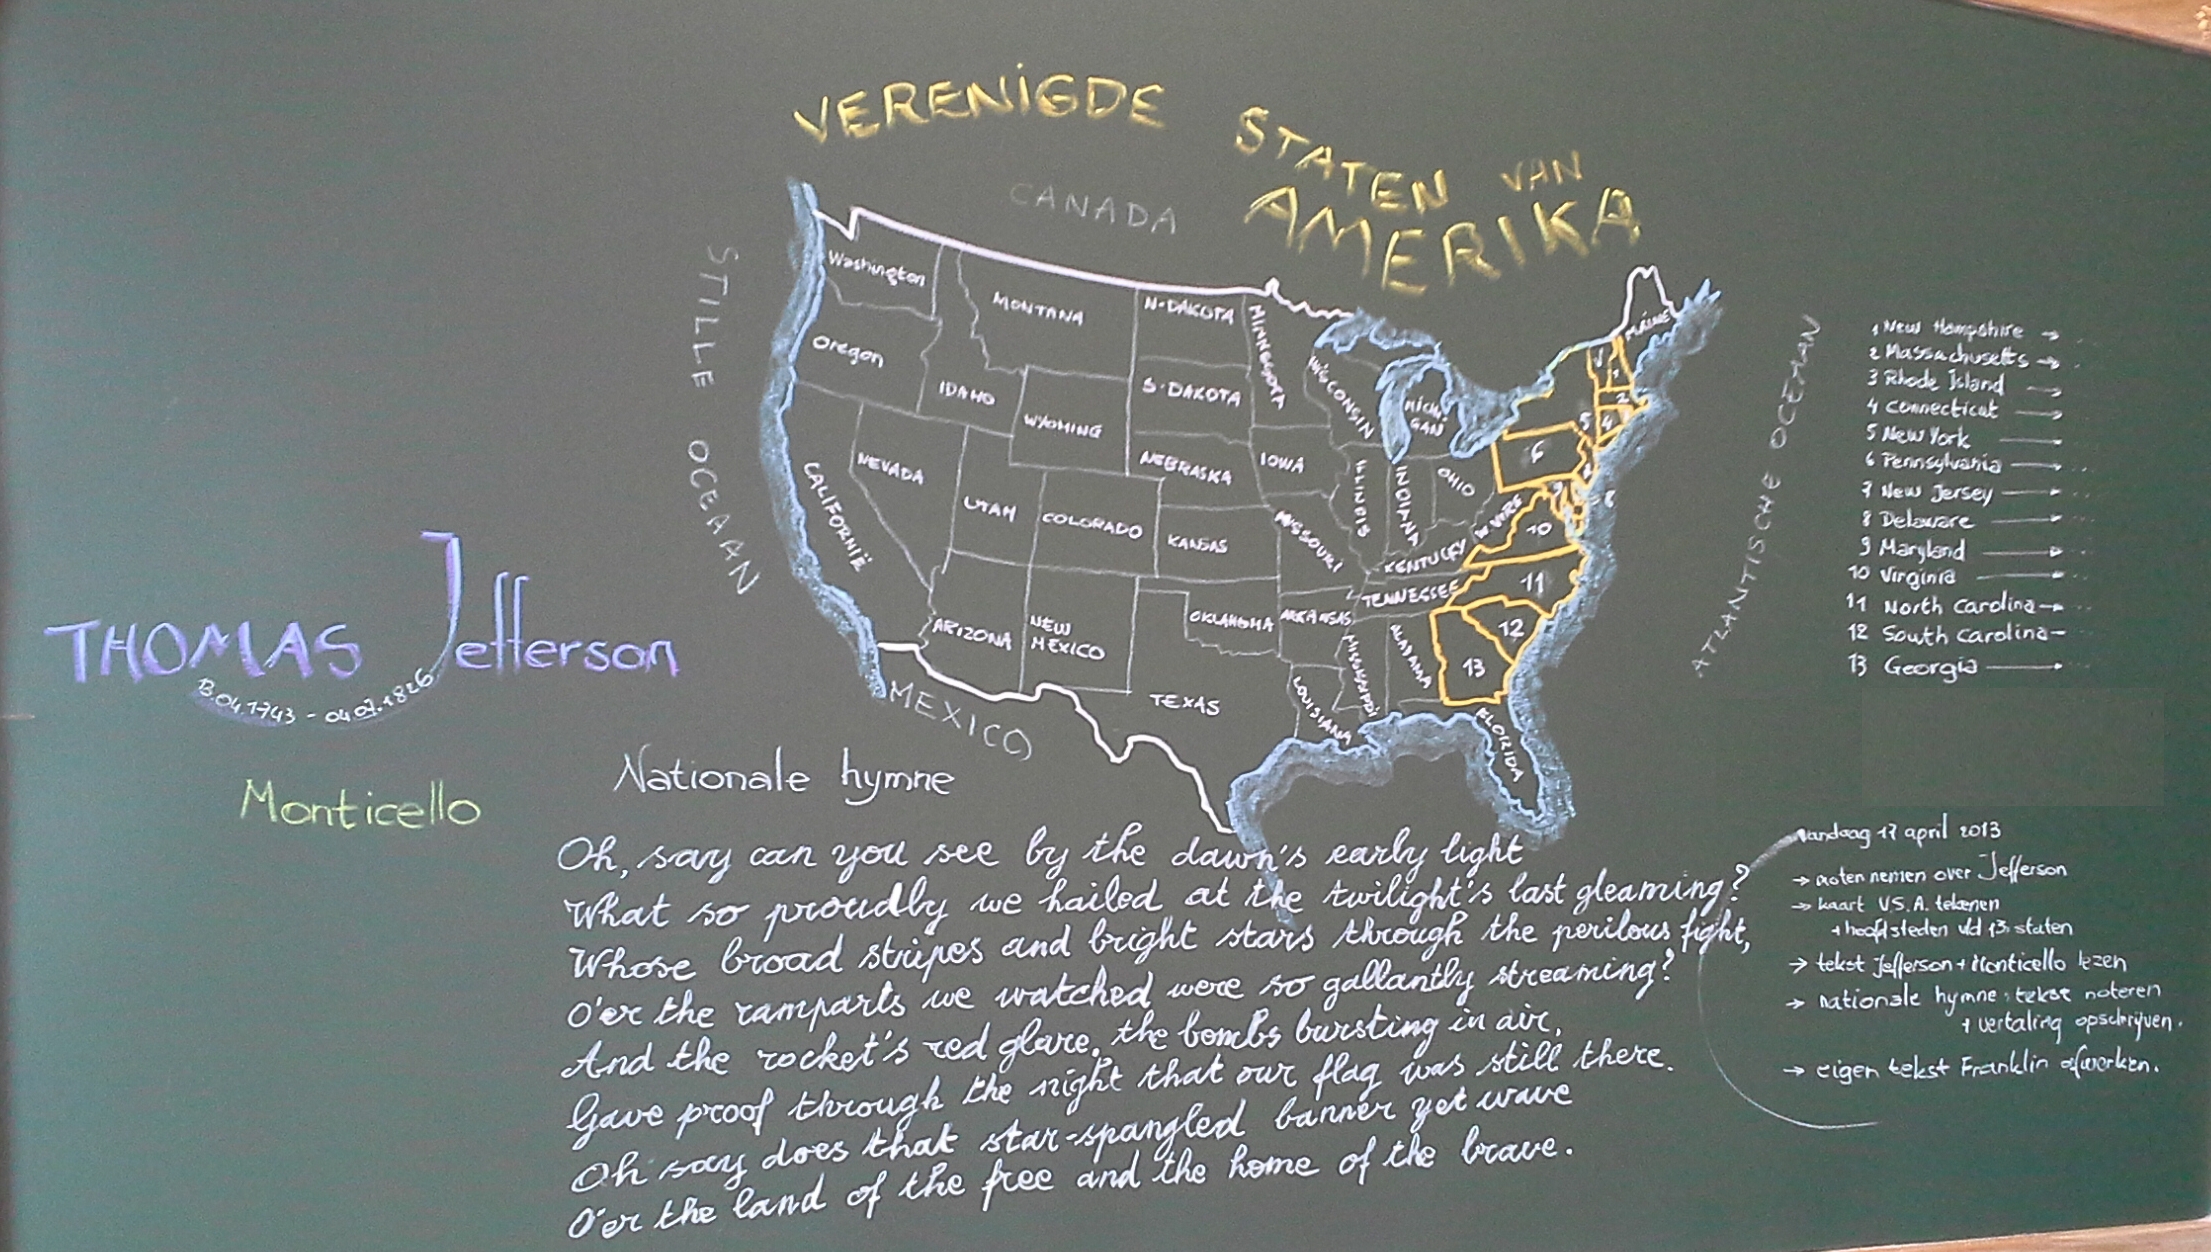 VERENIGDE STATEN VAN
AMERIKA
CANADA
STILLE OCEAAN
ATLANTISCHE OCEAAN
MEXICO
Washington
Oregon
CALIFORNIË
NEVADA
IDAHO
MONTANA
WYOMING
UTAH
COLORADO
ARIZONA
NEW
MEXICO
N-DAKOTA
S-DAKOTA
NEBRASKA
KANSAS
OKLAHOMA
TEXAS
MINNESOTA
IOWA
MISSOURI
ARKANSAS
LOUISIANA
WISCONSIN
ILLINOIS
MICHI
GAN
INDIANA
OHIO
KENTUCKY
TENNESSEE
MISSISSIPPI
ALABAMA
FLORIDA
W VIRG
MAINE
V
1
2
4
5
6
8
10
11
12
13
1 New Hampshire →
2 Massachusetts →
3 Rhode Island →
4 Connecticut →
5 New York →
6 Pennsylvania →
7 New Jersey →
8 Delaware →
9 Maryland →
10 Virginia →
11 North Carolina →
12 South Carolina –
13 Georgia →
THOMAS Jefferson
13.04.1743 - 04.07.1826
Monticello
Nationale hymne
Oh, say can you see by the dawn's early light
What so proudly we hailed at the twilight's last gleaming?
Whose broad stripes and bright stars through the perilous fight,
O'er the ramparts we watched were so gallantly streaming?
And the rocket's red glare, the bombs bursting in air,
Gave proof through the night that our flag was still there.
Oh say does that star-spangled banner yet wave
O'er the land of the free and the home of the brave.
vandaag 17 april 2013
→ noten nemen over Jefferson
→ kaart V.S.A. tekenen
+ hoofdsteden v/d 13 staten
→ tekst Jefferson + Monticello lezen
→ nationale hymne: tekst noteren
+ vertaling opschrijven.
→ eigen tekst Franklin afwerken.